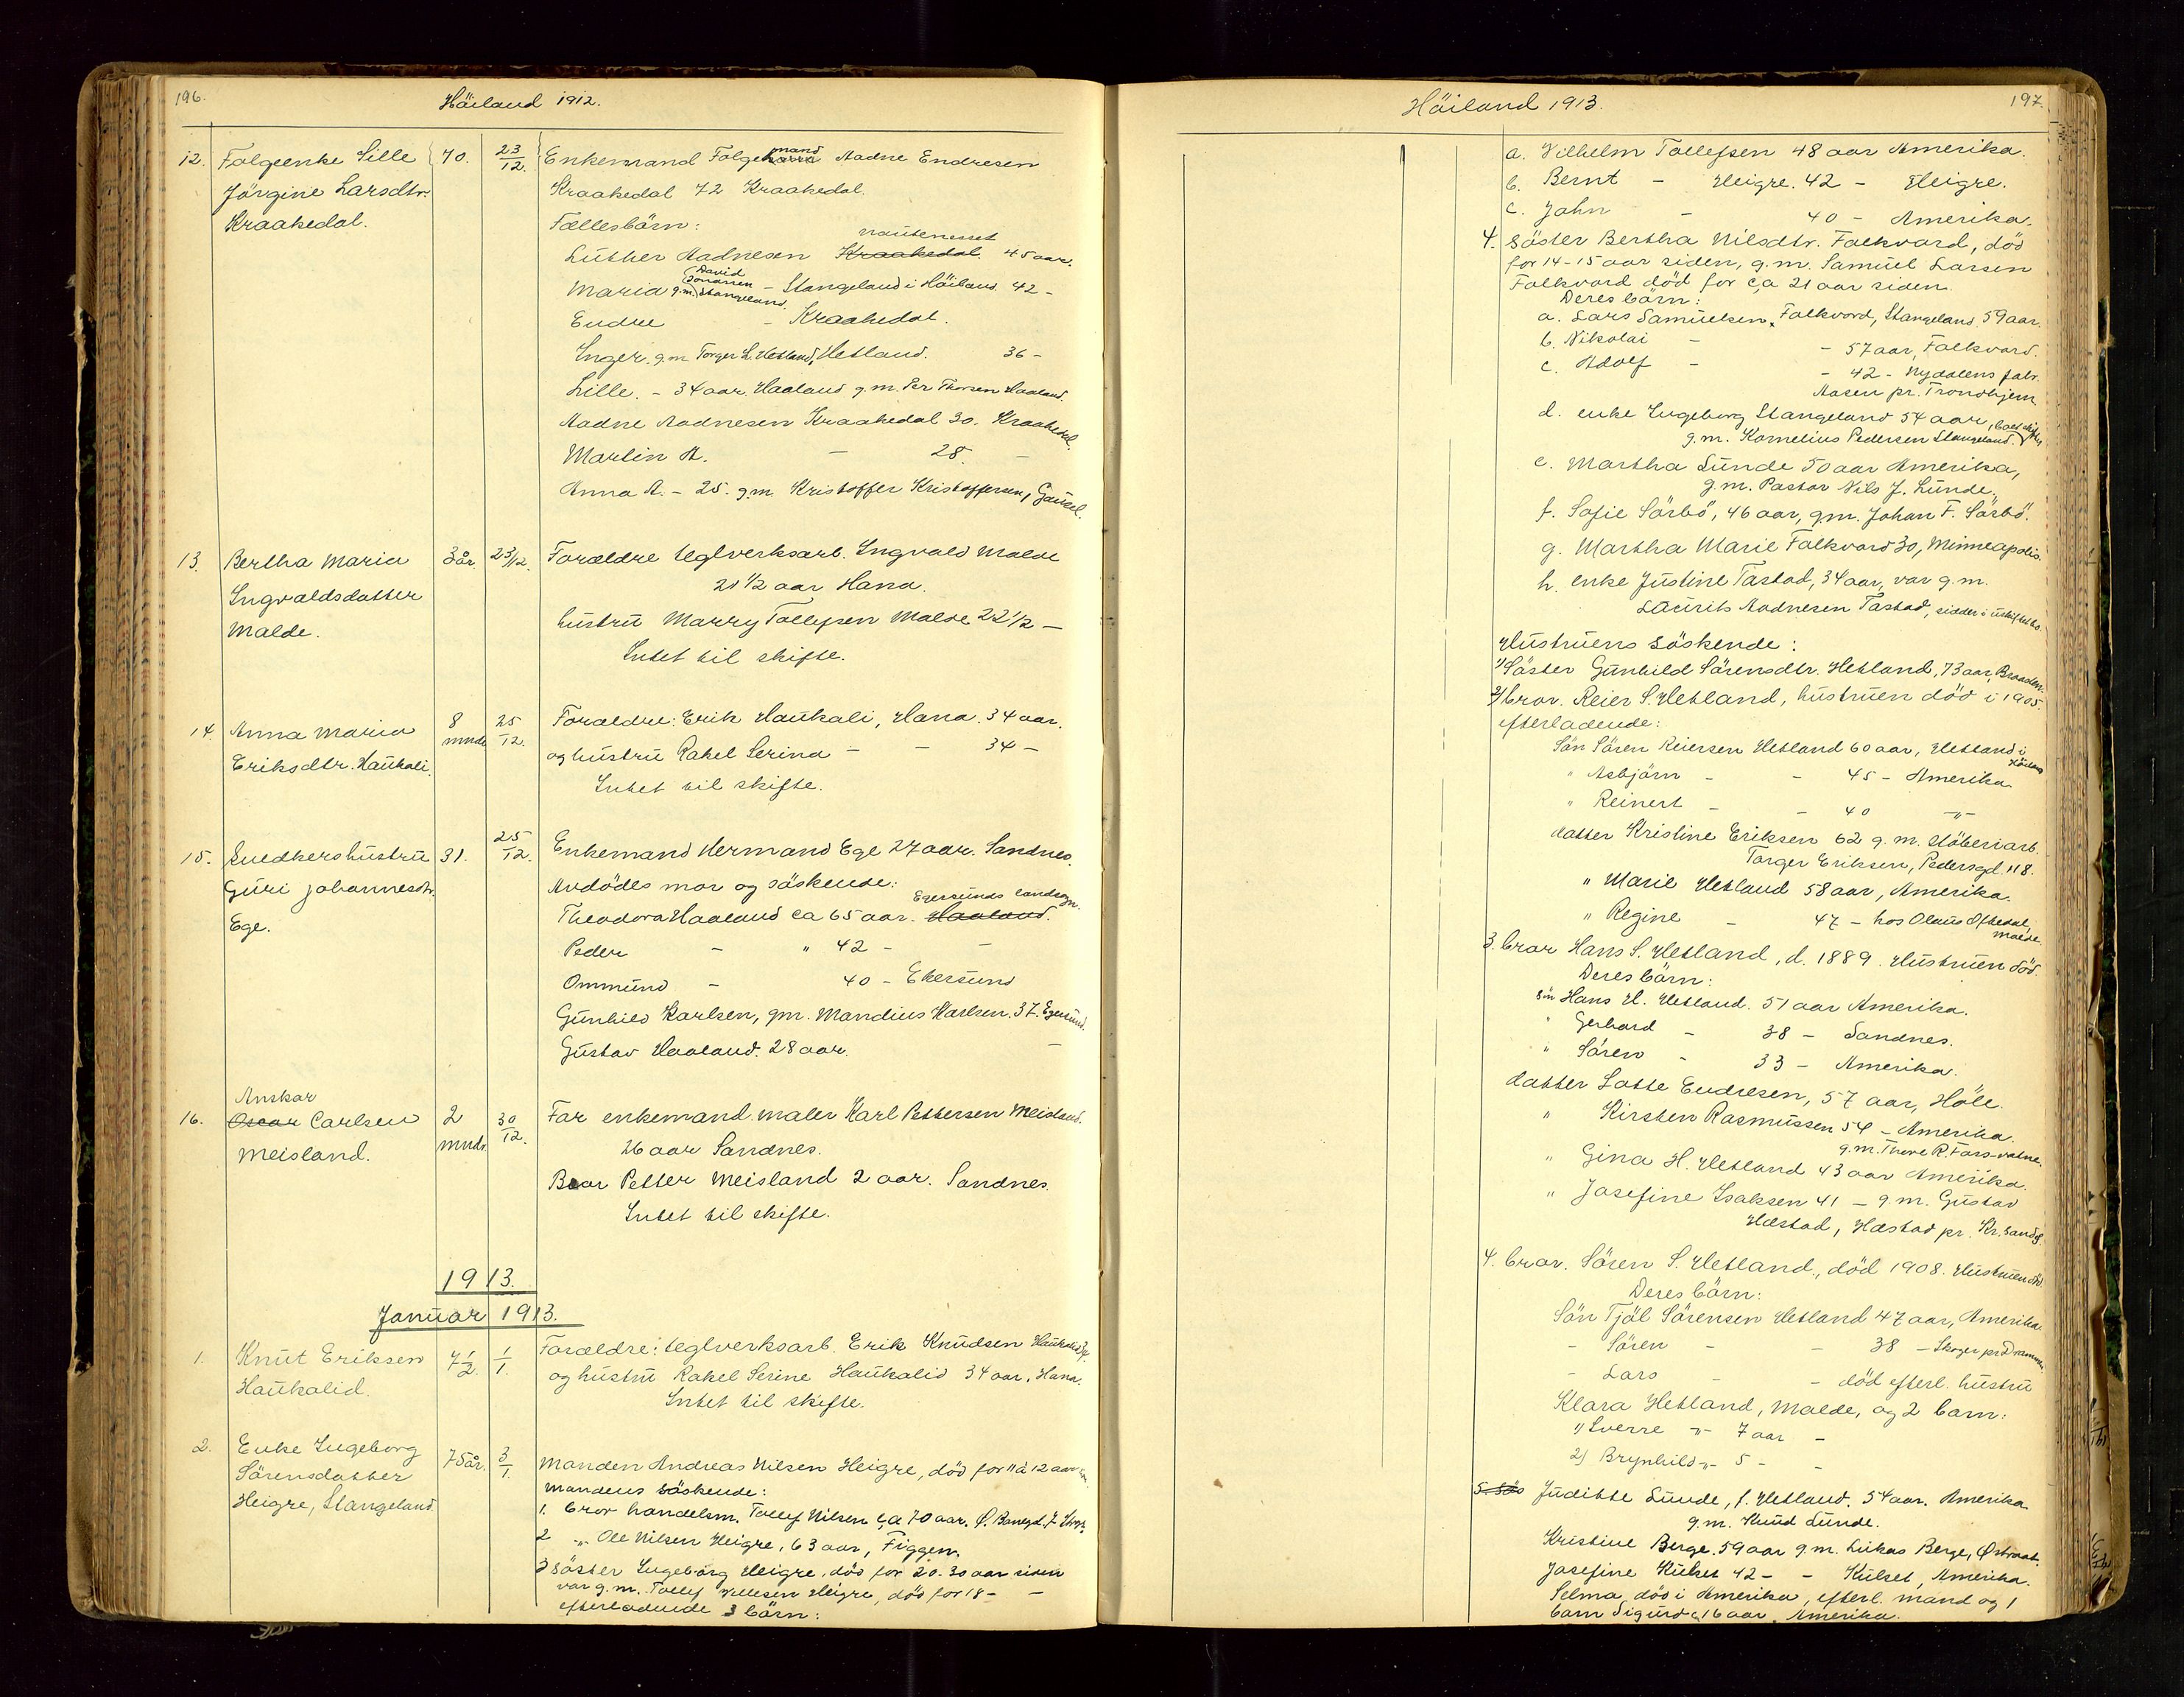 196.
Höiland 1912.
12. Folgeenke Sille 70. 23/12. Enkemand Folgemand Aadne Endresen
Jörgine Larsdtr. Kraahedal 72 Kraahedal.
Kraahedal. Fællesbörn:
Luther Aadnesen Kraahedal. 45 aar.
Maria g.m. David Jonassen Stangeland - Stangeland i Höiland. 42 -
Endre - Kraahedal.
Inger. g.m. Torger L. Hetland, Hetland. 36 -
Lille. - 34 aar. Haaland g.m. Per Thorsen Haaland.
Aadne Aadnesen Kraahedal 30. Kraahedal.
Martin A. - 28. -
Anna A. - 25. g.m. Kristoffer Kristoffersen, Gausel.
13. Bertha Maria 3 år. 23/12. Forældre teglverksarb. Ingvald Malde
Ingvaldsdatter 21 1/2 aar Hana.
Malde. hustru Marry Tollefsen Malde 22 1/2 -
Intet til skifte.
14. Anna Maria 8 mndr 25/12. Forældre: Erik Haukali, Hana. 34 aar.
Eriksdtr. Haukali. og hustru Rakel Serina - - 34 -
Intet til skifte.
15. Snedkershustru 31. 25/12. Enkemand Hermand Ege 27 aar. Sandnes.
Guri Johannesdtr. Avdödes mor og söskende:
Ege. Theodora Haaland ca 65 aar. Haaland. Egersunds landsogn.
Peder - " 42 - -
Ommund - 40 - Ekersund
Gunhild Karlsen, gm. Mandius Karlsen. 37. Egersund.
Gustav Haaland. 28 aar. -
Anskar
16. Oscar Carlsen 2 mndr. 30/12. Far enkemand. maler Karl Pettersen Meisland.
Meisland. 26 aar Sandnes.
Bror Petter Meisland 2 aar. Sandnes.
Intet til skifte.
1913.
Januar 1913.
1. Knut Eriksen 7 1/2. 1/1. Forældre: teglverksarb. Erik Knudsen Haukalid
Haukalid. og hustru Rakel Serine Haukalid 34 aar. Hana.
Intet til skifte.
2. Enke Ingeborg 75 år. 3/1. Manden Andreas Nilsen Heigre, död for 11 à 12 aar
Sörensdatter Mandens söskende:
Heigre, Stangeland 1. bror handelsm. Tollef Nilsen ca 70 aar.
2 -"- Ole Nilsen Heigre, 63 aar, Figgen.
3 söster Ingeborg Heigre, död for 20. 30 aar siden
var g.m. Tollef Heigre, död for 18 - -
efterladende 3 börn:
Höiland 1913.
197.
a. Vilhelm Tollefsen 48 aar Amerika.
b. Bernt - Heigre. 42 - Heigre.
c. John - 40 - Amerika.
4. söster Bertha Nilsdtr. Folkvord, död
for 14-15 aar siden, g.m. Samuel Larsen
Folkvord död for ca 21 aar siden.
Deres börn:
a. Lars Samuelsen Folkvord, Stangeland 59 aar.
b. Nikolai - - 57 aar, Folkvord.
c. Adolf - - 42 - Nydalens fabr.
Aasen pr. Trondhjem
d. enke Ingeborg Stangeland 54 aar,
g.m. Kornelius Pedersen Stangeland.
e. Martha Lunde 50 aar Amerika,
g.m. Pastor Nils J. Lunde.
f. Sofie Sörbö, 46 aar, g.m. Johan F. Sörbö.
g. Martha Marie Folkvord 30, Minneapolis.
h. enke Justine Tastad, 34 aar, var g.m.
Laurits Aadnesen Tastad, sidder i uskiftet bo.
Hustruens söskende:
1) Söster Gunhild Sörensdtr. Hetland, 73 aar,
2) bror. Reier S. Hetland, hustruen död i 1905.
efterladende:
Sön Sören Reiersen Hetland 60 aar, Hetland i Höiland
" Asbjörn - - 45 - Amerika
" Reinert - - 40 -"-
datter Kristine Eriksen 62 g.m. stöberiarb.
Torger Eriksen, Pedersgd. 118.
" Marie Hetland 58 aar, Amerika.
" Regine - 47 - hos Olaus Oftedal, Malde.
3. bror Hans S. Hetland, d. 1889. Hustruen död.
Deres börn:
sön Hans H. Hetland. 51 aar Amerika.
" Gerhard - 38 - Sandnes.
" Sören - 33 - Amerika.
datter Lotte Endresen, 57 aar, Höle.
" Kirsten Rasmussen 54 - Amerika.
g.m. Thore R.
" Gina H. Hetland 43 aar Amerika.
" Josefine Isaksen 41 - g.m. Gustav
Hæstad, Hæstad pr. Kr.sand S.
4. bror. Sören S. Hetland, död 1908. Hustruen död
Deres börn:
Sön Tjöl Sörensen Hetland 47 aar, Amerika.
- Sören - - 38 - Skoger pr Drammen
- Lars - - död efterl. hustru
Klara Hetland, Malde, og 2 barn:
1) Sverre -"- 7 aar -
2) Brynhild -"- 5 - -
5. sös Juditte Lunde, f. Hetland. 54 aar. Amerika
g.m. Knud Lunde.
Kristine Berge. 59 aar g.m. Lukas Berge, Østraat.
Josefine Kulset 42 - - Kulset, Amerika.
Selma, död i Amerika, efterl. mand og 1
barn Sigurd ca 16 aar, Amerika.